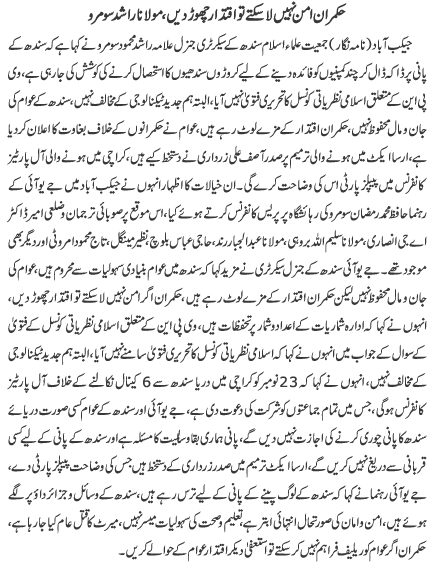 حکمران امن نہیں لا سکتے تو اقتدار چھوڑ دیں، مولانا راشد سومرو
جیکب آباد (نامہ نگار) جمعیت علماء اسلام سندھ کے سیکرٹری جنرل علامہ راشد محمود سومرو نے کہا ہے کہ سندھ کے
پانی پر ڈاکہ ڈال کر چند کمپنیوں کو فائدہ دینے کے لیے کروڑوں سندھیوں کا استحصال کرنے کی کوشش کی جا رہی ہے، وی
پی این کے متعلق اسلامی نظریاتی کونسل کا تحریری فتویٰ نہیں آیا، البتہ ہم جدید ٹیکنالوجی کے مخالف نہیں، سندھ کے عوام کی
جان و مال محفوظ نہیں، حکمران اقتدار کے مزے لوٹ رہے ہیں، عوام نے حکمرانوں کے خلاف بغاوت کا اعلان کر دیا
ہے، ارسا ایکٹ میں ہونے والی ترمیم پر صدر آصف علی زرداری نے دستخط کیے ہیں، کراچی میں ہونے والی آل پارٹیز
کانفرنس میں پیپلز پارٹی اس کی وضاحت کرے گی۔ ان خیالات کا اظہار انہوں نے جیکب آباد میں جے یو آئی کے
رہنما حافظ محمد رمضان سومرو کی رہائشگاہ پر پریس کانفرنس کرتے ہوئے کیا، اس موقع پر صوبائی ترجمان و ضلعی امیر ڈاکٹر
اے جی انصاری، مولانا سلیم اللہ بروہی، مولانا عبدالجبار رند، حاجی عباس بلوچ، نظیر مینگل، تاج محمود امروٹی اور دیگر بھی
موجود تھے۔ جے یو آئی سندھ کے جنرل سیکرٹری نے مزید کہا کہ سندھ میں عوام بنیادی سہولیات سے محروم ہیں، عوام کی
جان و مال محفوظ نہیں لیکن حکمران اقتدار کے مزے لوٹ رہے ہیں، حکمران اگر امن نہیں لا سکتے تو اقتدار چھوڑ دیں،
انہوں نے کہا کہ ادارہ شماریات کے اعداد و شمار پر تحفظات ہیں، وی پی این کے متعلق اسلامی نظریاتی کونسل کے فتویٰ
کے سوال کے جواب میں انہوں نے کہا کہ اسلامی نظریاتی کونسل کا تحریری فتویٰ سامنے نہیں آیا، البتہ ہم جدید ٹیکنالوجی
کے مخالف نہیں، انہوں نے کہا کہ 23 نومبر کو کراچی میں دریا سندھ سے 6 کینال نکالنے کے خلاف آل پارٹیز
کانفرنس ہوگی، جس میں تمام جماعتوں کو شرکت کی دعوت دی ہے، جے یو آئی اور سندھ کے عوام کسی صورت دریائے
سندھ کا پانی چوری کرنے کی اجازت نہیں دیں گے، پانی ہماری بقا و سلامیت کا مسئلہ ہے اور سندھ کے پانی کے لیے کسی
قربانی سے دریغ نہیں کریں گے، ارسا ایکٹ ترمیم میں صدر زرداری کے دستخط ہیں جس کی وضاحت پیپلز پارٹی دے،
جے یو آئی رہنما نے کہا کہ سندھ کے لوگ پینے کے پانی کے لیے ترس رہے ہیں، سندھ کے وسائل و جزائر داؤ پر لگے
ہوئے ہیں، امن و امان کی صورتحال انتہائی ابتر ہے، تعلیم و صحت کی سہولیات میسر نہیں، میرٹ کا قتل عام کیا جا رہا ہے،
حکمران اگر عوام کو ریلیف فراہم نہیں کر سکتے تو استعفیٰ دیکر اقتدار عوام کے حوالے کریں۔